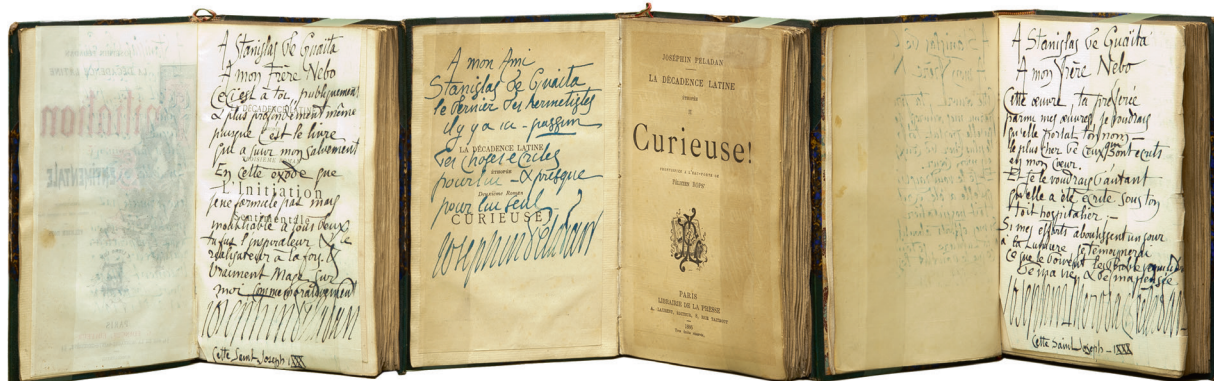 A Stanislas de Guaita
A mon Frère Nebo
Ceci est à toi, publiquement
LA DÉCADENCE LATINE
& plus profondément même
puisque c'est le livre
qui a suivi mon
En cette exode que
L'Initiation
je ne formule pas mais
Sentimentale
inoubliable à tous deux
tu fus l'inspirateur & le
réalisateur à la fois &
vraiment Mage sur
moi commémorativement
Joséphin Péladan
Cette Saint Joseph
A mon Ami
Stanislas de Guaita
le dernier des hermetistes
il y a ici - passim
LA DÉCADENCE LATINE
ÉTHOPÉE
des choses écrites
pour lui - & presque
Deuxième Roman
pour lui seul
CURIEUSE
Joséphin Péladan
JOSÉPHIN PÉLADAN
LA DÉCADENCE LATINE
ÉTHOPÉE
II
Curieuse!
FRONTISPICE A L'EAU-FORTE DE
FÉLICIEN ROPS
PARIS
LIBRAIRIE DE LA PRESSE
A. LAURENT, ÉDITEUR, 8, RUE TAITBOUT
1886
Tous droits réservés.
A Stanislas de Guaita
A mon Frère Nebo
Cette œuvre, ta préférée
parmi mes œuvres je voudrais
qu'elle portât ton nom -
le plus cher de ceux qui sont écrits
en mon cœur.
Et je le voudrais d'autant
qu'elle a été écrite sous ton
toit hospitalier -
Si mes efforts aboutissent un jour
à la Lumière je témoignerai
ce que te doivent les
de ma vie & de ma pensée
Joséphin Péladan
Cette Saint Joseph -